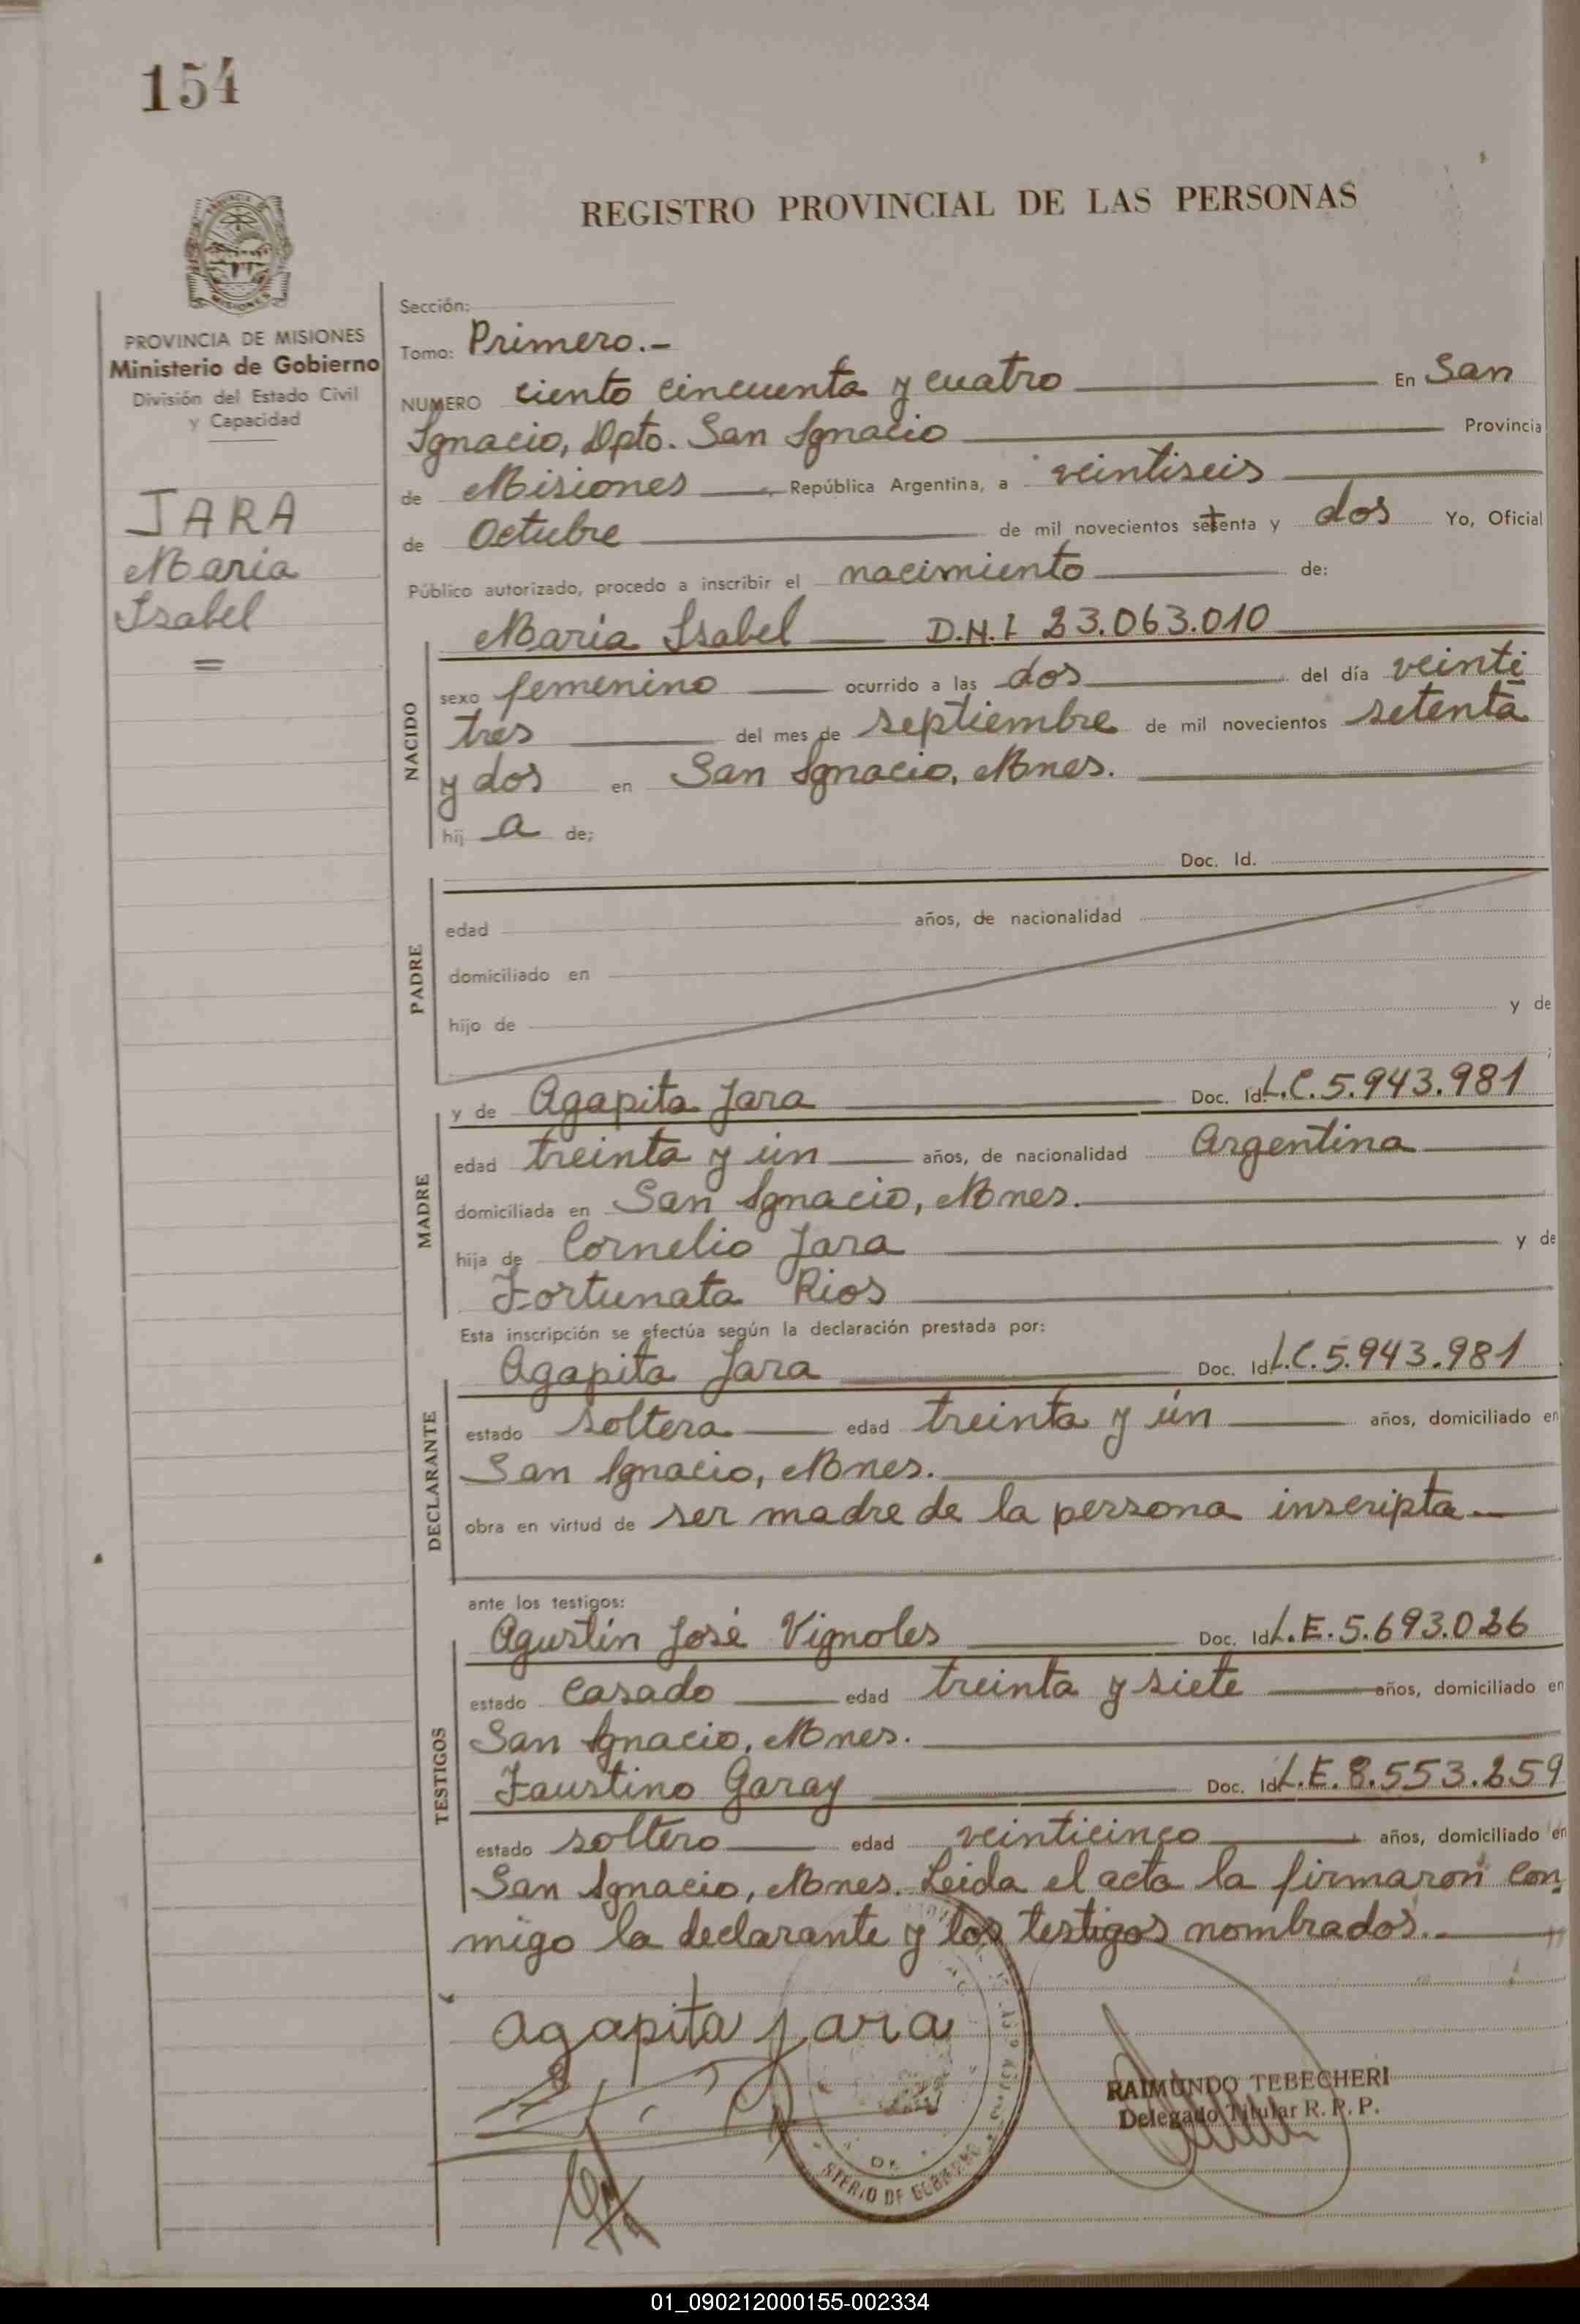 154
REGISTRO PROVINCIAL DE LAS PERSONAS
MISIONES
PROVINCIA DE MISIONES
Ministerio de Gobierno
División del Estado Civil
y Capacidad
JARA
Maria
Isabel
=
Sección:
Tomo: Primero.-
NUMERO ciento cincuenta y cuatro En San
Ignacio, Dpto. San Ignacio Provincia
de Misiones República Argentina, a veintiseis
de Octubre de mil novecientos setenta y dos Yo, Oficial
Público autorizado, procedo a inscribir el nacimiento de:
NACIDO
María Isabel D.N.I 23.063.010
sexo femenino ocurrido a las dos del día veinti
tres del mes de septiembre de mil novecientos setenta
y dos en San Ignacio, Mnes.
hij a de;
PADRE
Doc. Id.
edad años, de nacionalidad
domiciliado en
hijo de y de
;
MADRE
y de Agapita Jara Doc. Id. L.C. 5.943.981
edad treinta y ún años, de nacionalidad Argentina
domiciliada en San Ignacio, Mnes.
hija de Cornelio Jara y de
Fortunata Rios
Esta inscripción se efectúa según la declaración prestada por:
DECLARANTE
Agapita Jara Doc. Id. L.C. 5.943.981
estado soltera edad treinta y ún años, domiciliado en
San Ignacio, Mnes.
obra en virtud de ser madre de la persona inscripta.-
ante los testigos:
TESTIGOS
Agustín José Vignoles Doc. Id. L.E. 5.693.026
estado casado edad treinta y siete años, domiciliado en
San Ignacio, Mnes.
Faustino Garay Doc. Id. L.E. 8.553.259
estado soltero edad veinticinco años, domiciliado en
San Ignacio, Mnes. Leida el acta la firmaron con
migo la declarante y los testigos nombrados.-
agapita jara
RAIMUNDO TEBECHERI
Delegado Titular R. P. P.
DE GOBIERNO
01_090212000155-002334